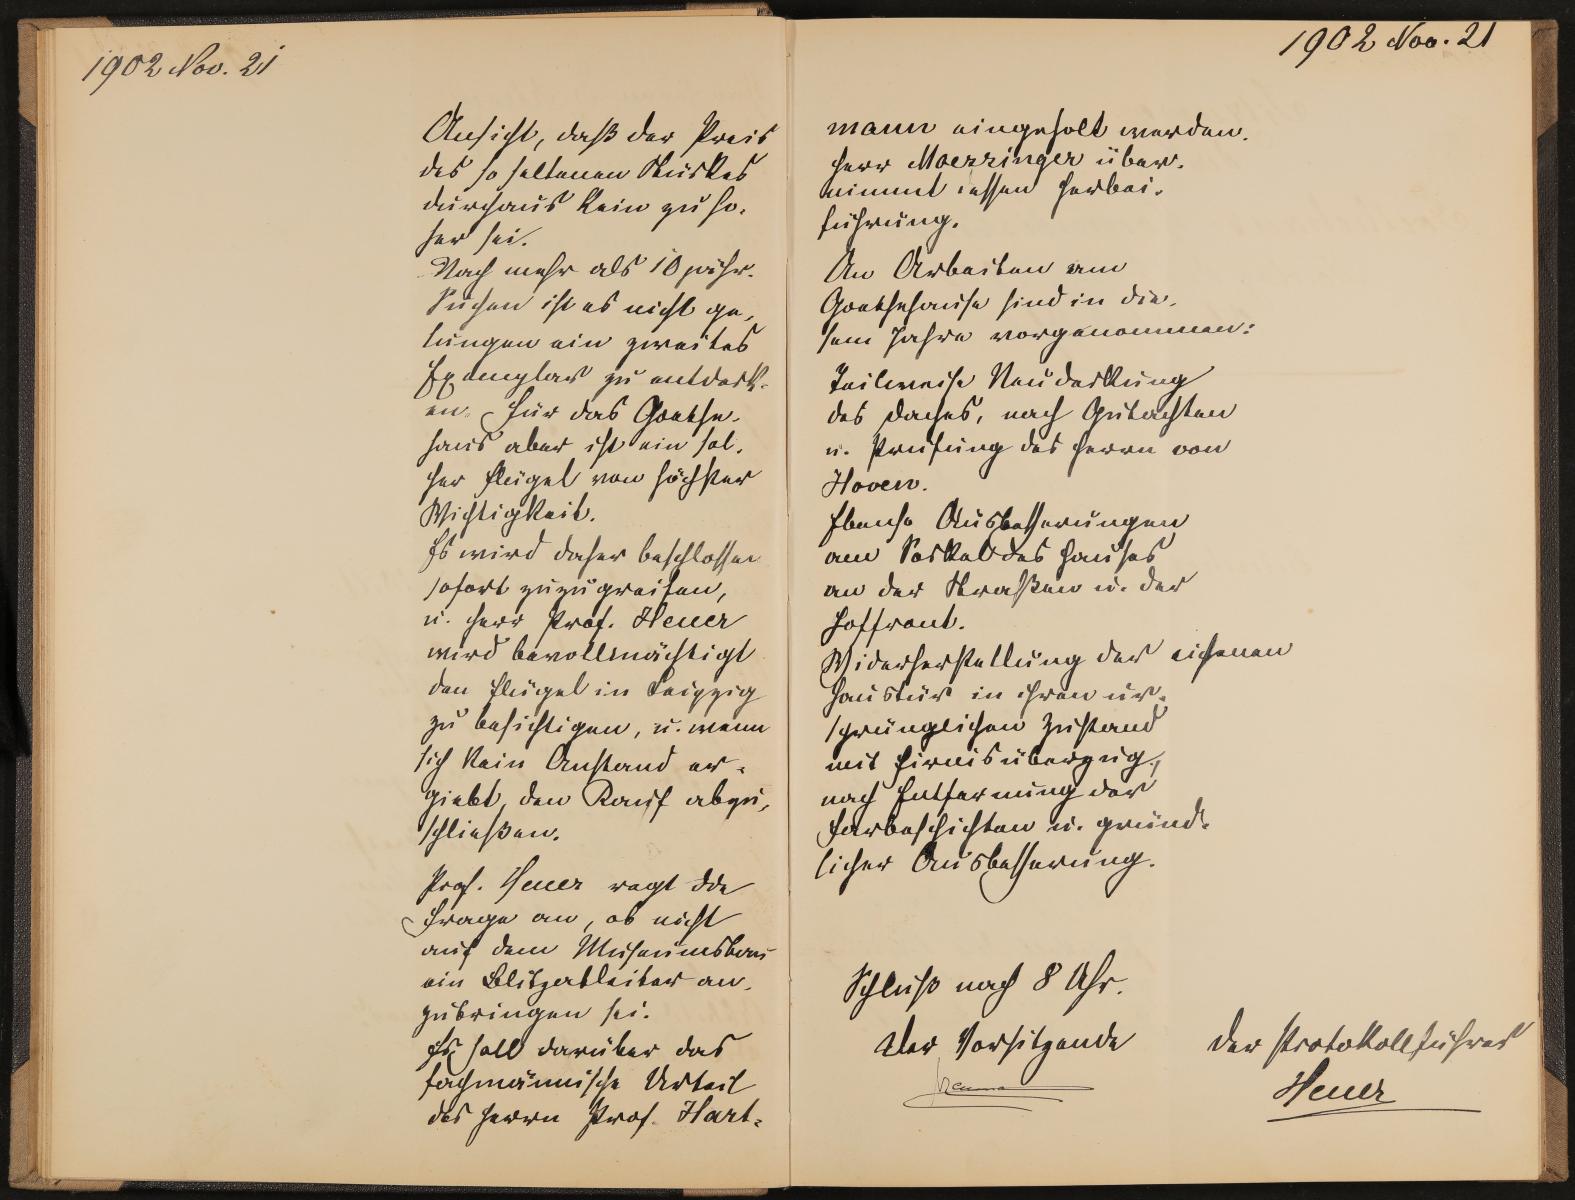 1902 Nov. 21
Ansicht, daß der Preis
des so seltenen Stückes
durchaus kein zu ho-
her sei.
Nach mehr als 10 jähr.
Suchen ist es nicht ge-
lungen ein zweites
Exemplar zu entdeck-
en. Für das Goethe-
haus aber ist ein sol-
cher Flügel von höchster
Wichtigkeit.
Es wird daher beschlossen
sofort zuzugreifen,
u. Herr Prof. Heuer
wird bevollmächtigt
den Flügel in Leipzig
zu besichtigen, u. wenn
sich kein Anstand er-
giebt, den Kauf abzu-
schließen.
Prof. Heuer regt die
Frage an, ob nicht
auf dem Museumsbau
ein Blitzableiter an-
zubringen sei.
Es soll darüber das
fachmännische Urteil
des Herrn Prof. Hart-
1902 Nov. 21
mann eingeholt werden.
Herr Moessinger über-
nimmt dessen Herbei-
führung.
An Arbeiten am
Goethehause sind in die-
sem Jahre vorgenommen:
Teilweise Neudeckung
des Daches, nach Gutachten
u. Prüfung des Herrn von
Hoven.
Ebenso Ausbesserungen
am Sockel des Hauses
an der Straßen u. der
Hoffront.
Widerherstellung der eichenen
Haustür in ihren ur-
sprünglichen Zustand
mit Firnisüberzug,
nach Entfernung der
Farbeschichten u. gründ-
licher Ausbesserung.
Schluß nach 8 Uhr.
Der Vorsitzende
Der Protokollführer
Heuer